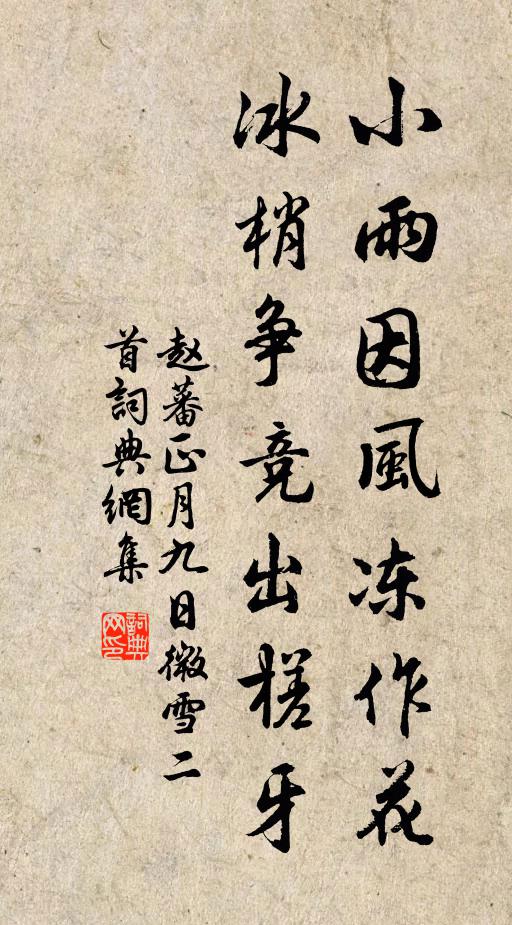 小雨因風冻作花
冰梢争竞出槎牙
赵蕃正月九日微雪二
首詞典網集
詞典
网印